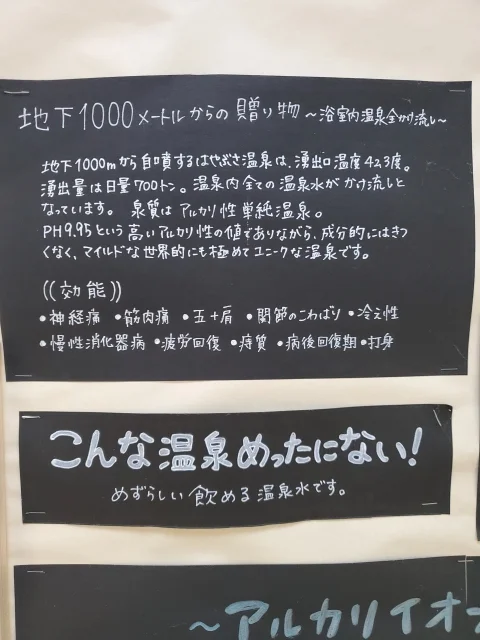 地下1000メートルからの贈り物 〜浴室内温泉全かけ流し〜
地下1000mから自噴するはやぶさ温泉は、湧出口温度42.3度。
湧出量は日量700トン。温泉内全ての温泉水がかけ流しと
なっています。 泉質はアルカリ性単純温泉。
PH9.95という高いアルカリ性の値でありながら、成分的にはきつ
くなく、マイルドな世界的にも極めてユニークな温泉です。
((効能))
•神経痛 •筋肉痛 •五十肩 •関節のこわばり •冷え性
•慢性消化器病 •疲労回復 •痔質 •病後回復期 •打身
こんな温泉めったにない!
めずらしい飲める温泉水です。
〜アルカリイオ